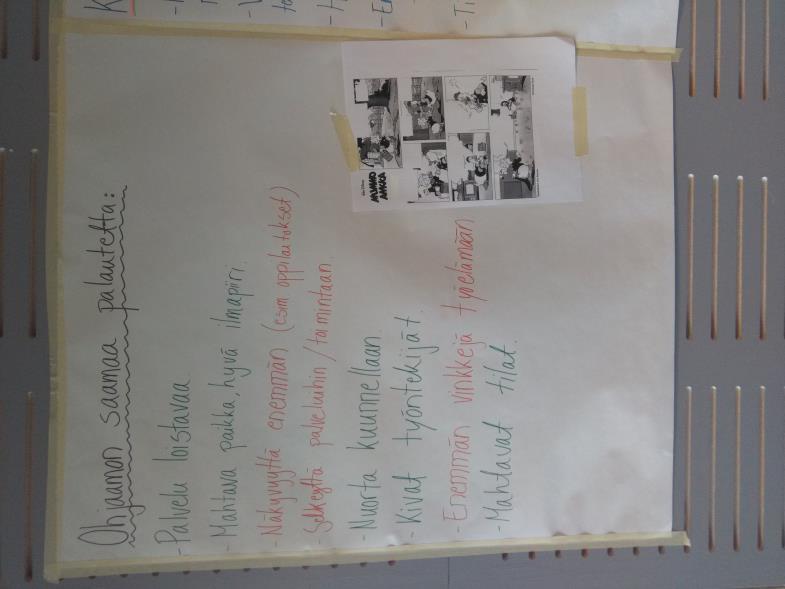 Ohjaamon saamaa palautetta:
- Palvelu loistavaa
- Mahtava paikka, hyvä ilmapiiri.
- Näkyvyyttä enemmän (esim oppilaitokset)
Selkeyttä palveluihin/toimintaan.
- Nuorta kuunnellaan.
- Kivat työntekijät.
- Enemmän vinkkejä työelämään
- Mahtavat tilat.
MUMMO
ANKKA